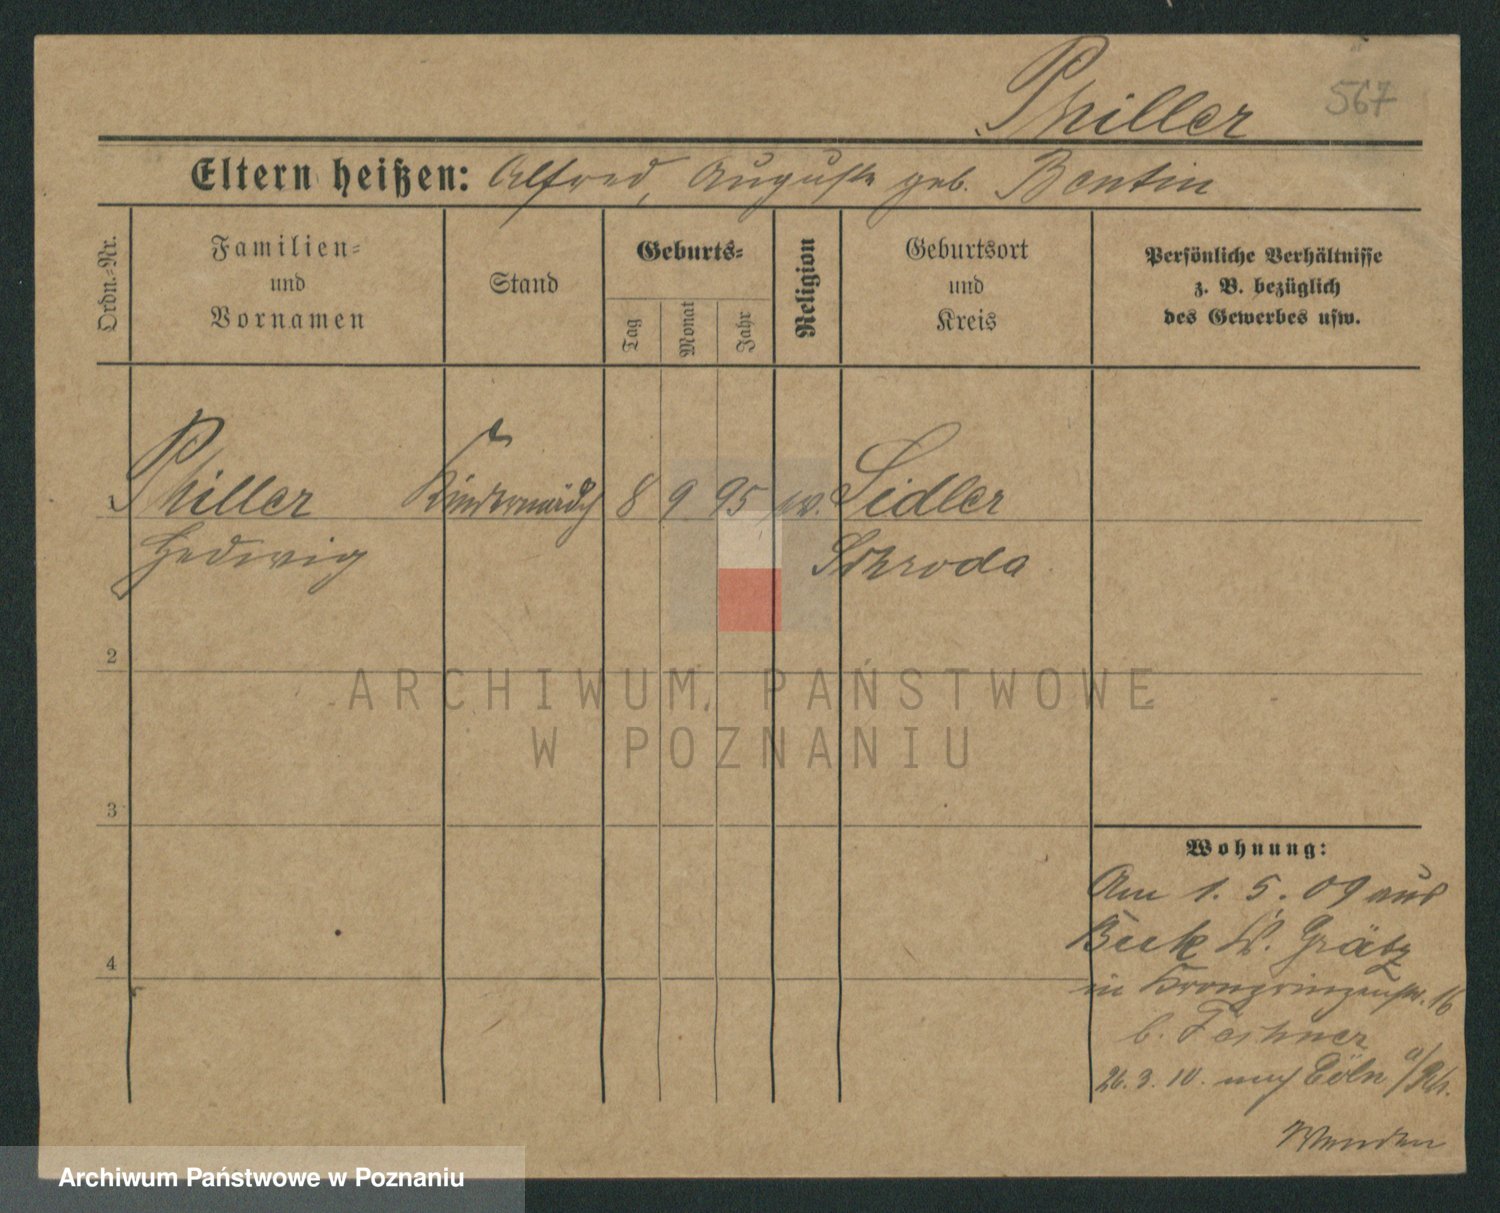 Philler 567
Eltern heißen: Alfred, Auguste geb. Bentin
Ordn.-Nr.
Familien-
und
Vornamen
Stand
Geburts-
Tag
Monat
Jahr
Religion
Geburtsort
und
Kreis
Persönliche Verhältnisse
z. B. bezüglich
des Gewerbes usw.
1 Philler Kindermädch 8 9 95 ev. Sidler
Hedwig Schroda
2
3
4
ARCHIWUM PAŃSTWOWE
W POZNANIU
Wohnung:
Am 1. 5. 09 aus
Buk Kr. Grätz
in Kronprinzenstr. 16
b.
26. 3. 10. nach Cöln a/Rh.
Wenden
Archiwum Państwowe w Poznaniu